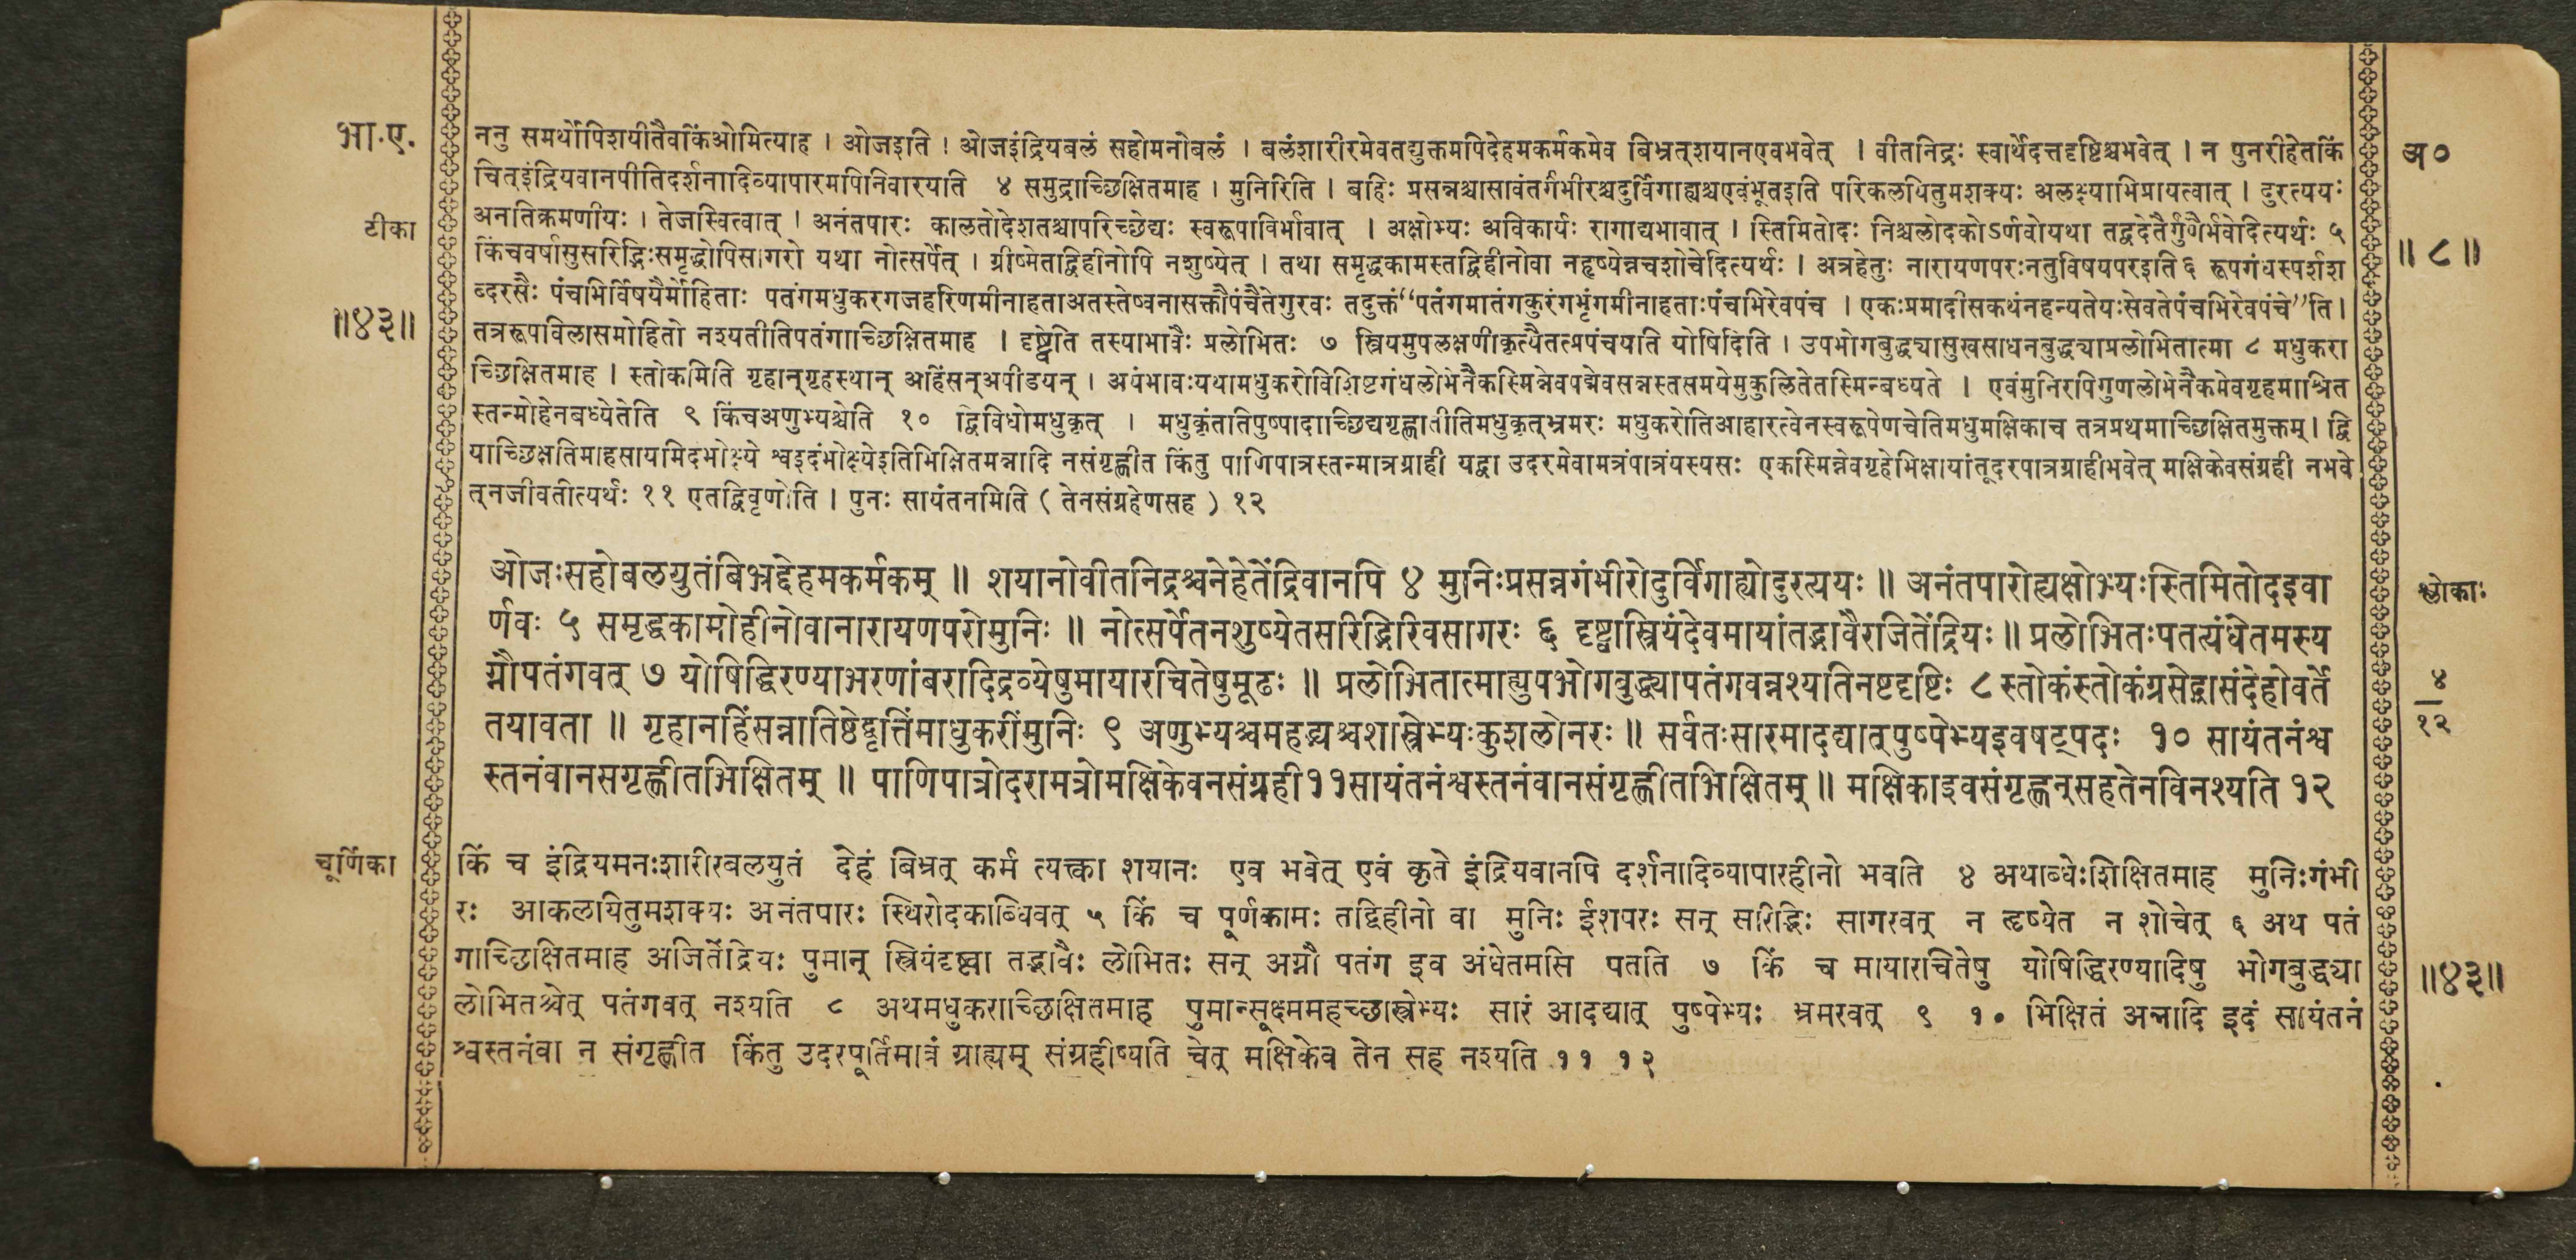 भा.ए.
ननु समर्थोपिशयीतैवकिंओमित्याह । ओजइति । ओजइंद्रियबलं सहोमनोबलं । बलंशारीरमेवतद्युक्तमपिदेहमकर्मकमेव बिभ्रत्शयानएवभवेत् । वीतनिद्रः स्वार्थेदत्तदृष्टिश्चभवेत् । न पुनरीहेतकिं
अ०
चित्इंद्रियवानपीतिदर्शनाादिव्यापारमपिनिवारयति ४ समुद्राच्छिक्षितमाह । मुनिरिति । बहिः प्रसन्नश्चासावंतर्गभीरश्चदुर्विगाह्यश्चएवंभूतइति परिकलयितुमशक्यः अलक्ष्याभिप्रायत्वात् । दुरत्ययः
टीका
अनतिक्रमणीयः । तेजस्वित्वात् । अनंतपारः कालतोदेशतश्चापरिच्छेद्यः स्वरूपाविर्भावात् । अक्षोभ्यः अविकार्यः रागाद्यभावात् । स्तिमितोदः निश्चलोदकोऽर्णवोयथा तद्वदेतैर्गुणैर्भवेदित्यर्थः ५
॥ ८ ॥
किंचवर्षासुसरिद्भिःसमृद्धोपिसागरो यथा नोत्सर्पेत् । ग्रीष्मेतद्विहीनोपि नशुष्येत् । तथा समृद्धकामस्तद्विहीनोवा नहृष्येन्नचशोचेदित्यर्थः । अत्रहेतुः नारायणपरःनतुविषयपरइति ६ रूपगंधस्पर्शश
ब्दरसैः पंचभिर्विषयैर्मोहिताः पतंगमधुकरगजहरिणमीनाहताअतस्तेष्वनासक्तौपंचैतेगुरवः तदुक्तं “पतंगमातंगकुरंगभृंगमीनाहताःपंचभिरेवपंच । एकःप्रमादीसकथंनहन्यतेयःसेवतेपंचभिरेवपंचे”ति ।
॥४३॥
तत्ररूपविलासमोहितो नश्यतीतिपतंगाच्छिक्षितमाह । दृष्ट्वेति तस्याभावैः प्रलोभितः ७ स्त्रियमुपलक्षणीकृत्यैतत्प्रपंचयति योषिदिति । उपभोगबुद्ध्यासुखसाधनबुद्ध्याप्रलोभितात्मा ८ मधुकरा
च्छिक्षितमाह । स्तोकमिति गृहान्गृहस्थान् अहिंसन्अपीडयन् । अयंभावःयथामधुकरोविशिष्टगंधलोभेनैकस्मिन्नेवपद्मेवसन्नस्तसमयेमुकुलितेतस्मिन्बध्यते । एवंमुनिरपिगुणलोभेनैकमेवगृहमाश्रित
स्तन्मोहेनबध्येतेति ९ किंचअणुभ्यश्चेति १० द्विविधोमधुकृत् । मधुकृंतातिपुष्पादााच्छिद्यगृह्णातीतिमधुकृत्भ्रमरः मधुकरोतिआहारत्वेनस्वरूपेणचेतिमधुमक्षिकाच तत्रप्रथमाच्छिक्षितमुक्तम् । द्वि
याच्छिक्षतिमाहसायमिदभोक्ष्ये श्वइदंभोक्ष्येइतिभिक्षितमन्नादि नसंगृह्णीत किंतु पाणिपात्रस्तन्मात्रग्राही यद्वा उदरमेवामत्रंपात्रंयस्यसः एकस्मिन्नेवगृहेभिक्षायांतूदरपात्रग्राहीभवेत् मक्षिकेवसंग्रही नभवे
त्नजीवतीत्यर्थः ११ एतद्विवृणोति । पुनः सायंतनमिति ( तेनसंग्रहेणसह ) १२
ओजःसहोबलयुतंबिभ्रद्देहमकर्मकम् ॥ शयानोवीतनिद्रश्चनेहेतेंद्रिवानपि ४ मुनिःप्रसन्नगंभीरोदुर्विगाह्योदुरत्ययः ॥ अनंतपारोह्यक्षोभ्यःस्तिमितोदइवा
श्लोकाः
र्णवः ५ समृद्धकामोहीनोवानारायणपरोमुनिः ॥ नोत्सर्पेतनशुष्येतसरिद्भिरिवसागरः ६ दृष्ट्वास्त्रियंदेवमायांतद्भावैरजितेंद्रियः ॥ प्रलोभितःपतत्यंधेतमस्य
ग्नौपतंगवत् ७ योषिद्धिरण्याभरणांबरादिद्रव्येषुमायारचितेषुमूढः ॥ प्रलोभितात्माह्युपभोगबुद्ध्यापतंगवन्नश्यतिनष्टदृष्टिः ८ स्तोकंस्तोकंग्रसेद्ग्रासंदेहोवर्ते
४
१२
तयावता ॥ गृहानहिंसन्नातिष्ठेद्वृत्तिंमाधुकरींमुनिः ९ अणुभ्यश्चमहद्भ्यश्चशास्त्रेभ्यःकुशलोनरः ॥ सर्वतःसारमादद्यात्पुष्पेभ्यइवषट्पदः १० सायंतनंश्व
स्तनंवानसगृह्णीतभिक्षितम् ॥ पाणिपात्रोदरामत्रोमक्षिकेवनसंग्रही११सायंतनंश्वस्तनंवानसंगृह्णीतभिक्षितम् ॥ मक्षिकाइवसंगृह्णन्सहतेनविनश्यति १२
चूर्णिका
किं च इंद्रियमनःशारीरबलयुतं देहं बिभ्रत् कर्म त्यक्त्वा शयानः एव भवेत् एवं कृते इंद्रियवानपि दर्शनादिव्यापारहीनो भवति ४ अथाब्धेःशिक्षितमाह मुनिःगंभी
रः आकलयितुमशक्यः अनंतपारः स्थिरोदकाब्धिवत् ५ किं च पूर्णकामः तद्विहीनो वा मुनिः ईशपरः सन् सरिद्भिः सागरवत् न हृष्येत न शोचेत् ६ अथ पतं
गाच्छिक्षितमाह अजितेंद्रियः पुमान् स्त्रियंदृष्ट्वा तद्भावैः लोभितः सन् अग्नौ पतंग इव अंधेतमसि पतति ७ किं च मायारचितेषु योषिद्धिरण्यादिषु भोगबुद्ध्या
॥४३॥
लोभितश्चेत् पतंगवत् नश्यति ८ अथमधुकराच्छिक्षितमाह पुमान्सूक्ष्ममहच्छास्त्रेभ्यः सारं आदद्यात् पुष्पेभ्यः भ्रमरवत् ९ १० भिक्षितं अन्नादि इदं सायंतनं
श्वस्तनंवा न संगृह्णीत किंतु उदरपूर्तिमात्रं ग्राह्यम् संग्रहीष्यति चेत् मक्षिकेव तेन सह नश्यति ११ १२